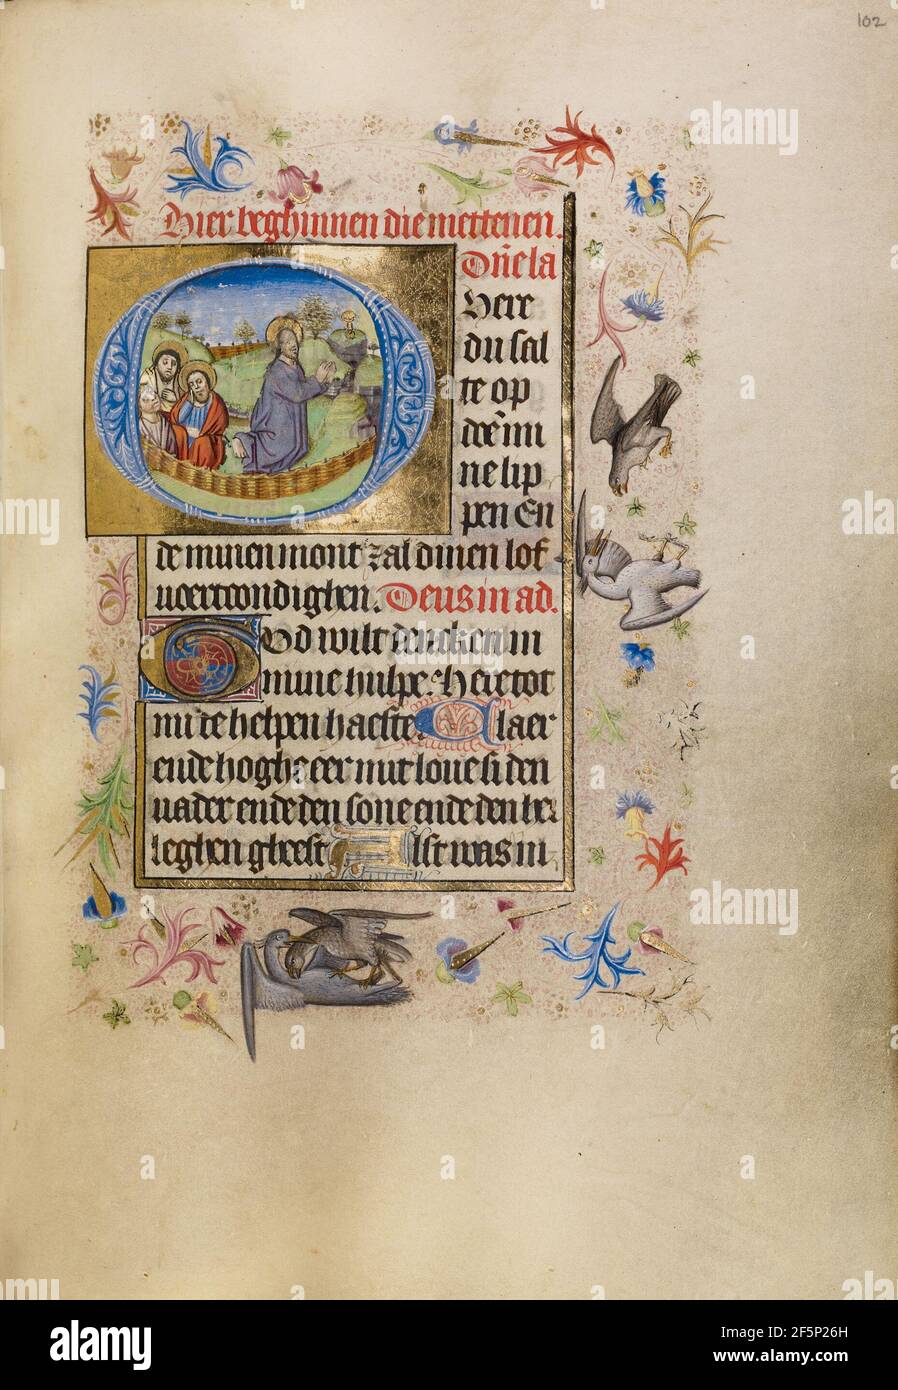 102
Hier beghinnen die mettenen.
Dñe la
Here
du sal
te op
doē mi
ne lip
pen En
de minen mont zal dinen lof
voertcondighen. Deus in ad.
God wilt dencken in
mine hulpe. Here tot
mi te helpen haeste Claer
ende hoghe eer mit loue si den
vader ende den sone ende den hei
leghen gheest Alst was in
alamy
Image ID: 2F5P26H
www.alamy.com